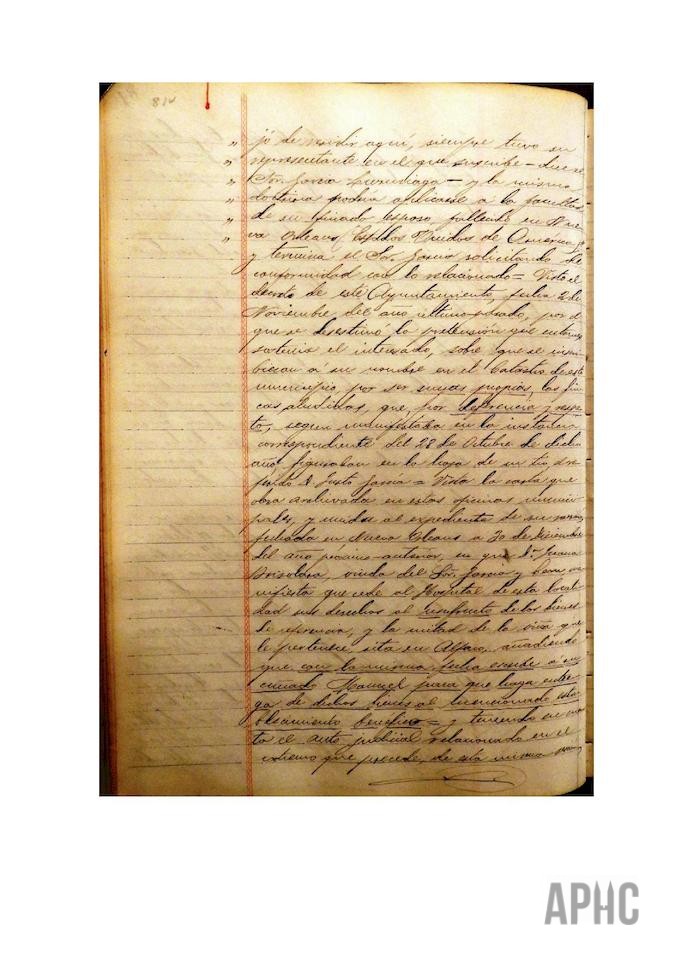 814
" jó de residir aquí, siempre tuvo su
" representante en el que suscribe - dice el
" Sor. García - y la misma
" doctrina podría aplicarse a la
" de su finado esposo, fallecido en Nue
" va Orleans, Estados Unidos de America,
y termina el Sor. García solicitando de
conformidad con lo relacionado = Visto el
decreto de este Ayuntamiento, fecha 2 de
Noviembre del año ultimo pasado, por el
que se desestimó la pretensión que entonces
sostenía el interesado, sobre que se inscri
bieran á su nombre en el Catastro de este
municipio, por ser suyas propias, las fin
cas aludidas, que, por deferencia y respe
to, según manifestaba en la instancia
correspondiente del 28 de Octubre de dicho
año, figuraban en la hoja de su tío
D. Justo García = Vista la carta que
obra archivada en estas oficinas munici
pales, y unida al expediente de su
fechada en Nueva Orleans a 30 de Diciembre
del año próximo anterior, en que Dª Juana
Brisolara, viuda del Sor. García y
nifiesta que cede al Hospital de esta locali
dad sus derechos al usufructo de los bienes
de referencia, y la mitad de la viña que
le pertenece, sita en Alfaro, añadiendo
que con la misma fecha escribe a su
cuñado Manuel para que haga entre
ga de dichos bienes al mencionado esta
blecimiento benefico = y teniendo en cuen
ta el auto judicial relacionado en el
extremo que precede, de esta misma
APHC